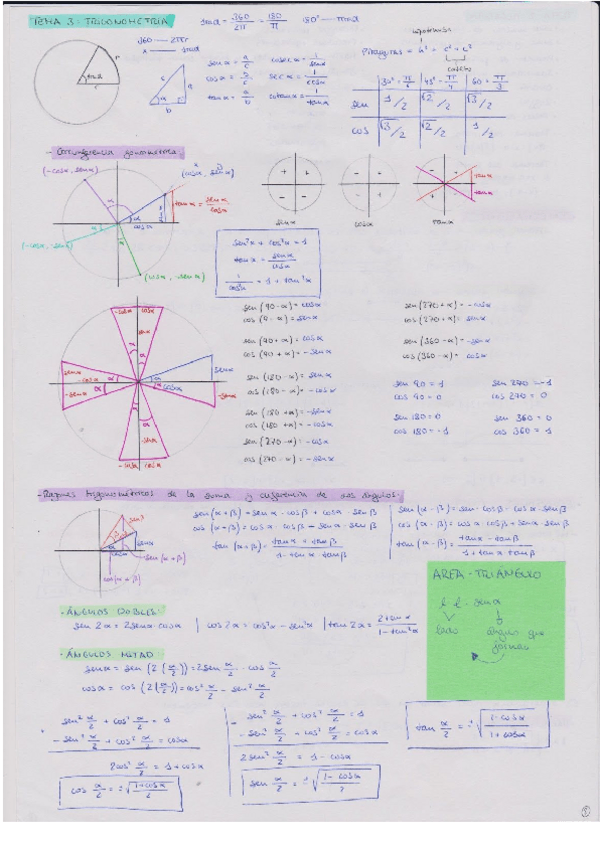 TEMA 3: TRIGONOMETRIA
1rad = 360/2π = 180/π 180° — πrad
360 — 2πr
x — 1rad
r
1rad
r
c
a
b
sen α = a/c cosec α = 1/sen α
cos α = b/c sec α = 1/cos α
tan α = a/b cotan α = 1/tan α
hipotenusa
Pitágoras = h² = c² + c²
catetos
30° π/6 45° π/4 60 π/3
sen 1/2 √2/2 √3/2
cos √3/2 √2/2 1/2
- Circunferencia goniometrica:
(-cos α, sen α)
(cos α, sen α)
tan α = sen α/cos α
sen α
α
cos α
(-cos α, -sen α)
(cos α, -sen α)
+ +
- -
sen α
- +
- +
cos α
- +
+ -
tan α
tan α
tan α
sen² α + cos² α = 1
tan α = sen α/cos α
1/cos² α = 1 + tan² α
-cos α cos α
sen α
sen α
-cos α
-sen α
sen α
cos α
-sen α
-sen α
-cos α cos α
sen (90 - α) = cos α
cos (9 - α) = sen α
sen (90 + α) = cos α
cos (90 + α) = -sen α
sen (180 - α) = sen α
cos (180 - α) = -cos α
sen (180 + α) = -sen α
cos (180 + α) = -cos α
sen (270 - α) = -cos α
cos (270 - α) = -sen α
sen (270 + α) = -cos α
cos (270 + α) = sen α
sen (360 - α) = -sen α
cos (360 - α) = cos α
sen 90 = 1 sen 270 = -1
cos 90 = 0 cos 270 = 0
sen 180 = 0 sen 360 = 0
cos 180 = -1 cos 360 = 1
- Razones trigonométricas de la suma y diferencia de dos ángulos:
sen β
sen α
cos α
sen (α + β)
cos (α + β)
sen (α + β) = sen α · cos β + cos α · sen β
cos (α + β) = cos α · cos β - sen α · sen β
tan (α + β) = tan α + tan β / 1 - tan α · tan β
sen (α - β) = sen α · cos β - cos α · sen β
cos (α - β) = cos α · cos β + sen α · sen β
tan (α - β) = tan α - tan β / 1 + tan α · tan β
AREA - TRIÁNGULO
l · l · sen α
lado
ángulo que forman
- ÁNGULOS DOBLES:
sen 2α = 2sen α · cos α | cos 2α = cos² α - sen² α | tan 2α = 2tan α / 1 - tan² α
- ÁNGULOS MITAD
sen α = sen (2 (α/2)) = 2sen α/2 · cos α/2
cos α = cos (2 (α/2)) = cos² α/2 - sen² α/2
sen² α/2 + cos² α/2 = 1
- sen² α/2 + cos² α/2 = cos α
2cos² α/2 = 1 + cos α
cos α/2 = ±√(1 + cos α / 2)
sen² α/2 + cos² α/2 = 1
- sen² α/2 + cos² α/2 = cos α
2sen² α/2 = 1 - cos α
sen α/2 = ±√(1 - cos α / 2)
tan α/2 = ±√(1 - cos α / 1 + cos α)